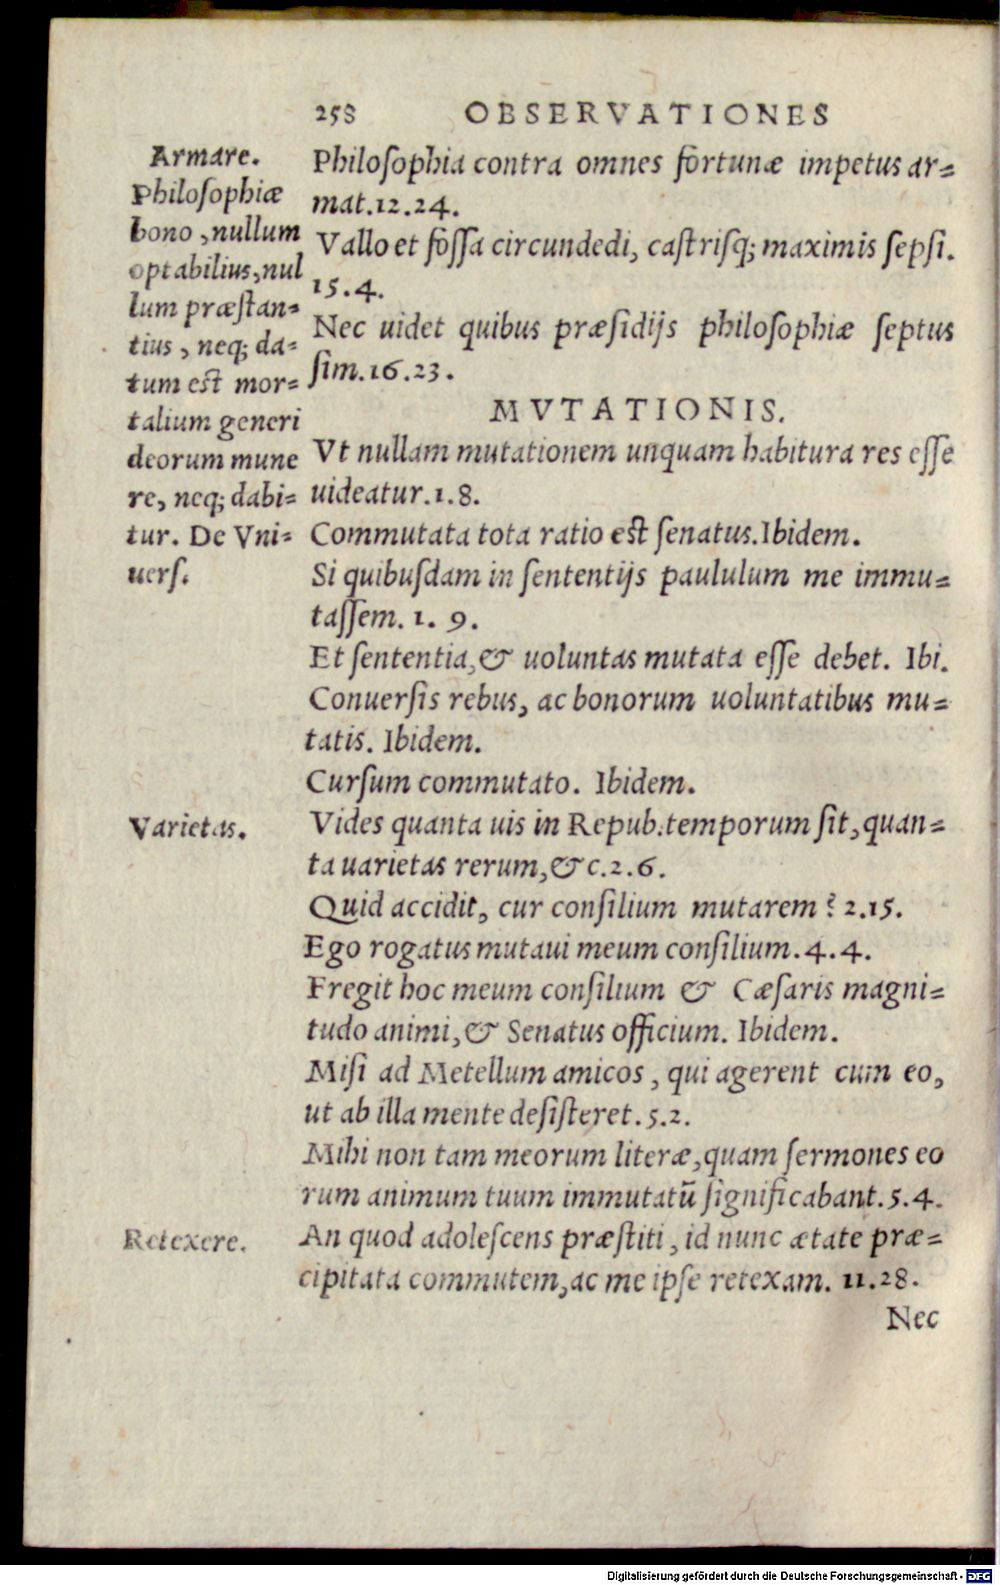 258 OBSERVATIONES
Armare.
Philosophiæ
bono, nullum
optabilius, nul
lum præstan=
tius, neq; da=
tum est mor=
talium generi
deorum mune
re, neq; dabi=
tur. De Vni=
uers.
Philosophia contra omnes fortunæ impetus ar=
mat.12.24.
Vallo et fossa circundedi, castrisq; maximis sepsi.
15.4.
Nec uidet quibus præsidijs philosophiæ septus
sim.16.23.
MVTATIONIS.
Vt nullam mutationem unquam habitura res esse
uideatur.1.8.
Commutata tota ratio est senatus. Ibidem.
Si quibusdam in sententijs paululum me immu=
tassem. 1. 9.
Et sententia, & uoluntas mutata esse debet. Ibi.
Conuersis rebus, ac bonorum uoluntatibus mu=
tatis. Ibidem.
Cursum commutato. Ibidem.
Varietas.
Vides quanta uis in Repub. temporum sit, quan=
ta uarietas rerum, & c.2.6.
Quid accidit, cur consilium mutarem? 2.15.
Ego rogatus mutaui meum consilium.4.4.
Fregit hoc meum consilium & Cæsaris magni=
tudo animi, & Senatus officium. Ibidem.
Misi ad Metellum amicos, qui agerent cum eo,
ut ab illa mente desisteret.5.2.
Mihi non tam meorum literæ, quam sermones eo
rum animum tuum immutatū significabant.5.4.
Retexere.
An quod adolescens præstiti, id nunc ætate præ=
cipitata commutem, ac me ipse retexam. 11.28.
Nec
Digitalisierung gefördert durch die Deutsche Forschungsgemeinschaft - DFG